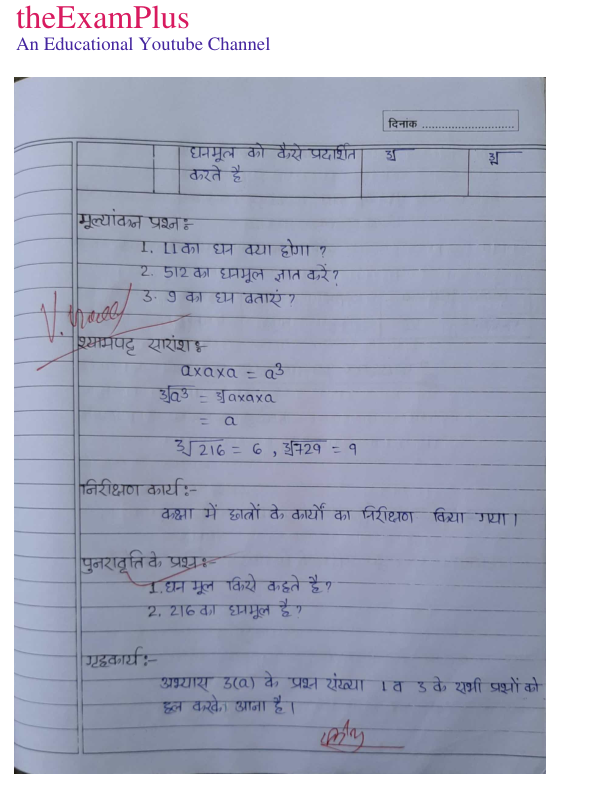 theExamPlus
An Educational Youtube Channel
दिनांक ............................
घनमूल को कैसे प्रदर्शित
करते है
∛
∛
मूल्यांकन प्रश्न :-
1. 11 का घन क्या होगा ?
2. 512 का घनमूल ज्ञात करें ?
3. 9 का घन बताएं ?
श्यामपट्ट सारांश :-
a×a×a = a³
∛a³ = ∛a×a×a
= a
∛216 = 6 , ∛729 = 9
निरीक्षण कार्य :-
कक्षा में छात्रों के कार्यों का निरीक्षण किया गया ।
पुनरावृति के प्रश्न :-
1. घन मूल किसे कहते है ?
2. 216 का घनमूल है ?
गृहकार्य :-
अभ्यास 3(a) के प्रश्न संख्या 1 व 3 के सभी प्रश्नों को
हल करके आना है ।